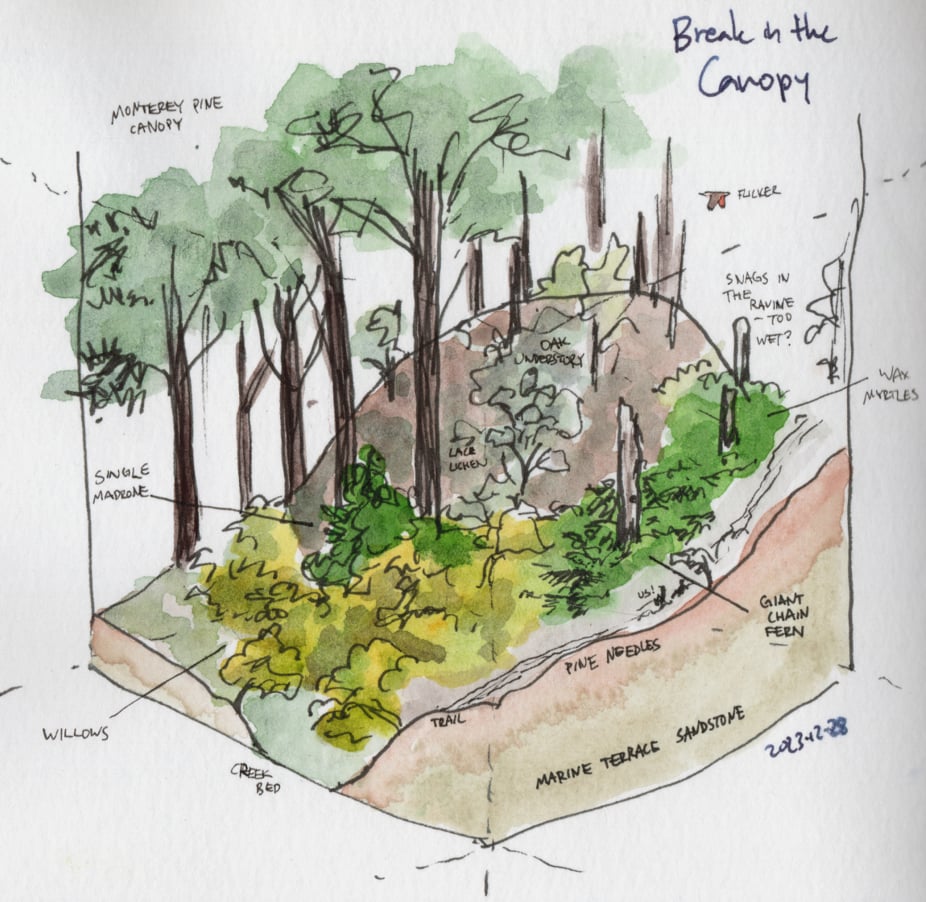 Break in the
Canopy
MONTEREY PINE
CANOPY
FLICKER
SNAGS IN
THE RAVINE
- TOO
WET?
OAK
UNDERSTORY
WAX
MYRTLES
LACE
LICHEN
SINGLE
MADRONE
US!
GIANT
CHAIN
FERN
PINE NEEDLES
TRAIL
WILLOWS
CREEK
BED
MARINE TERRACE SANDSTONE
2023-12-28